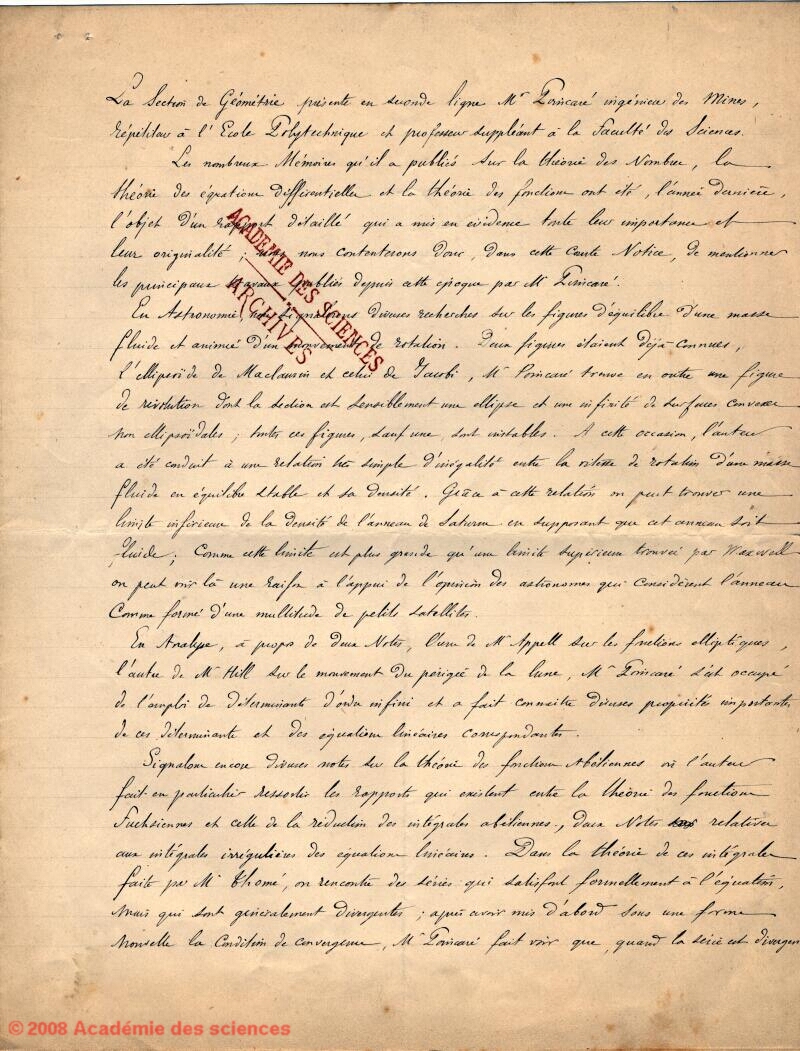 La Section de Géométrie présente en seconde ligne Mr Poincaré ingénieur des Mines,
répétiteur à l'Ecole Polytechnique et professeur suppléant à la Faculté des Sciences.
Les nombreux Mémoires qu'il a publiés sur la théorie des Nombres, la
théorie des équations différentielles et la théorie des fonctions ont été, l'année dernière,
l'objet d'un rapport détaillé qui a mis en évidence toute leur importance et
leur originalité ; nous nous contenterons donc, dans cette courte Notice, de mentionner
les principaux travaux publiés depuis cette époque par Mr Poincaré.
En Astronomie, nous signalerons diverses recherches sur les figures d'équilibre d'une masse
fluide et animée d'un mouvement de rotation. Deux figures étaient déjà connues,
l'ellipsoïde de Maclaurin et celui de Jacobi, Mr Poincaré trouve en outre une figure
de révolution dont la section est sensiblement une ellipse et une infinité de surfaces convexes
non ellipsoïdales ; toutes ces figures, sauf une, sont instables. A cette occasion, l'auteur
a été conduit à une relation très simple d'inégalité entre la vitesse de rotation d'une masse
fluide en équilibre stable et sa densité. Grâce à cette relation on peut trouver une
limite inférieure de la densité de l'anneau de Saturne en supposant que cet anneau soit
fluide ; Comme cette limite est plus grande qu'une limite supérieure trouvée par Maxwell
on peut voir là une raison à l'appui de l'opinion des astronomes qui considèrent l'anneau
comme formé d'une multitude de petits satellites.
En Analyse, à propos de deux Notes, l'une de Mr Appell sur les fonctions elliptiques,
l'autre de Mr Hill sur le mouvement du périgée de la lune, Mr Poincaré s'est occupé
de l'emploi de déterminants d'ordre infini et a fait connaître diverses propriétés importantes
de ces déterminants et des équations linéaires correspondantes.
Signalons encore diverses notes sur la théorie des fonctions Abéliennes où l'auteur
fait en particulier ressortir les rapports qui existent entre la théorie des fonctions
Fuchsiennes et celle de la réduction des intégrales abéliennes, deux Notes relatives
aux intégrales irrégulières des équations linéaires. Dans la théorie de ces intégrales
faite par Mr Thomé, on rencontre des séries qui satisfont formellement à l'équation,
mais qui sont généralement divergentes ; après avoir mis d'abord sous une forme
nouvelle la condition de convergence, Mr Poincaré fait voir que, quand la série est divergen
ACADEMIE DES SCIENCES
ARCHIVES
© 2008 Académie des sciences